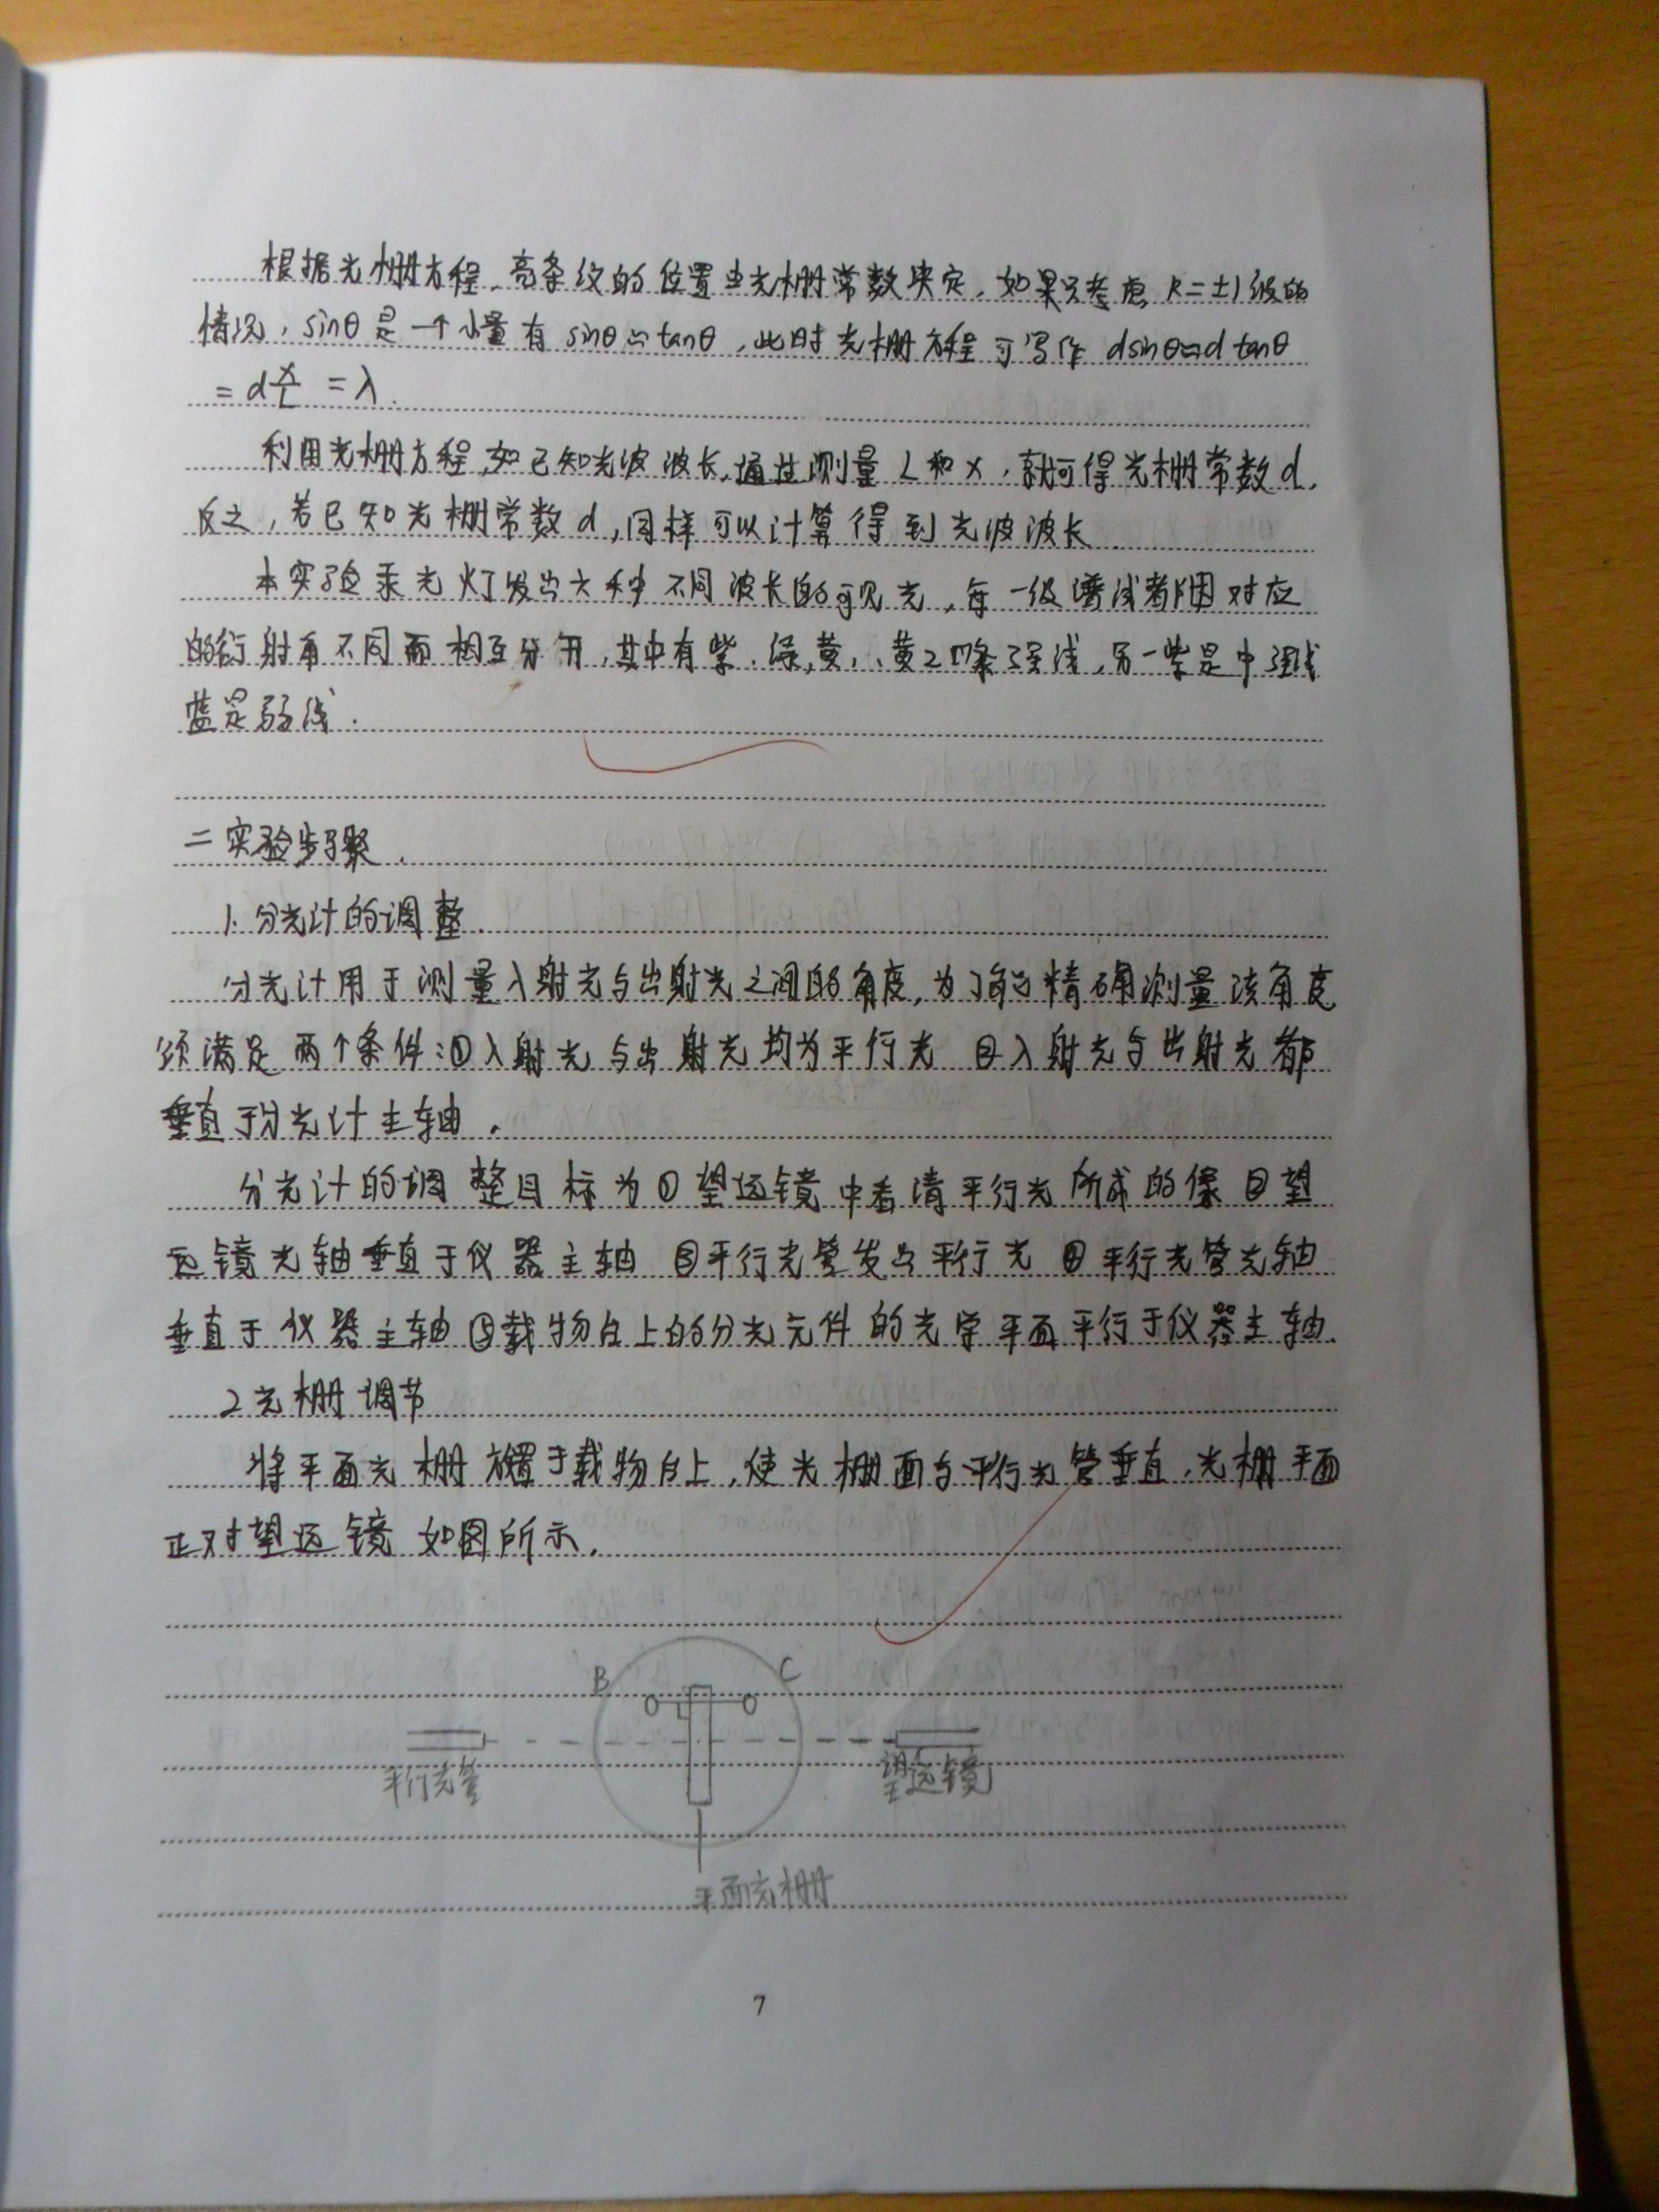 根据光栅方程，亮条纹的位置由光栅常数决定，如果只考虑 k=±1级的
情况，sinθ是一个小量有 sinθ≈tanθ，此时光栅方程可写作 dsinθ≈d tanθ
= d x/L = λ.
利用光栅方程，如已知光波波长，通过测量L和x，就可得光栅常数d，
反之，若已知光栅常数d，同样可以计算得到光波波长.
本实验汞光灯发出六种不同波长的可见光，每一级谱线都因对应
的衍射角不同而相互分开，其中有紫、绿、黄1、黄2四条强线，另一紫是中强线
蓝是弱线.
二 实验步骤.
1. 分光计的调整.
分光计用于测量入射光与出射光之间的角度，为了能够精确测量该角度
须满足两个条件：①入射光与出射光均为平行光 ②入射光与出射光都
垂直于分光计主轴.
分光计的调整目标为①望远镜中看清平行光所成的像 ②望
远镜光轴垂直于仪器主轴 ③平行光管发出平行光 ④平行光管光轴
垂直于仪器主轴 ⑤载物台上的分光元件的光学平面平行于仪器主轴.
2 光栅调节
将平面光栅放置于载物台上，使光栅面与平行光管垂直，光栅平面
正对望远镜 如图所示.
B C
平行光管 望远镜
平面光栅
7